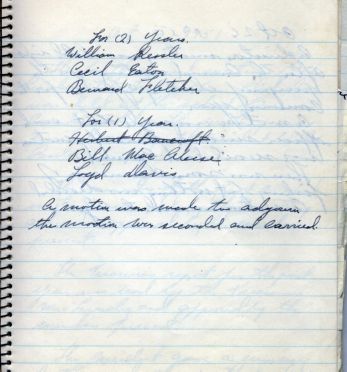 For (2) Years.
William Kessler
Cecil Eaton
Bernard Fletcher
For (1) Year.
Herbert Bancroft
Bill Mac
Loyd Davis
A motion was made to adjourn
the motion was seconded and carried.